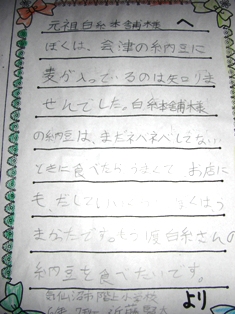 元祖白糸本舗様 へ
ぼくは、会津の納豆に
麦が入っているのは知りま
せんでした。白糸本舗様
の納豆は、まだネバネバしてない
ときに食べたら うまくて、お店に
も、だして くは、う
まかったです。もう1度白糸さんの
納豆を食べたいです。
気仙沼市 階上小学校
6年 より